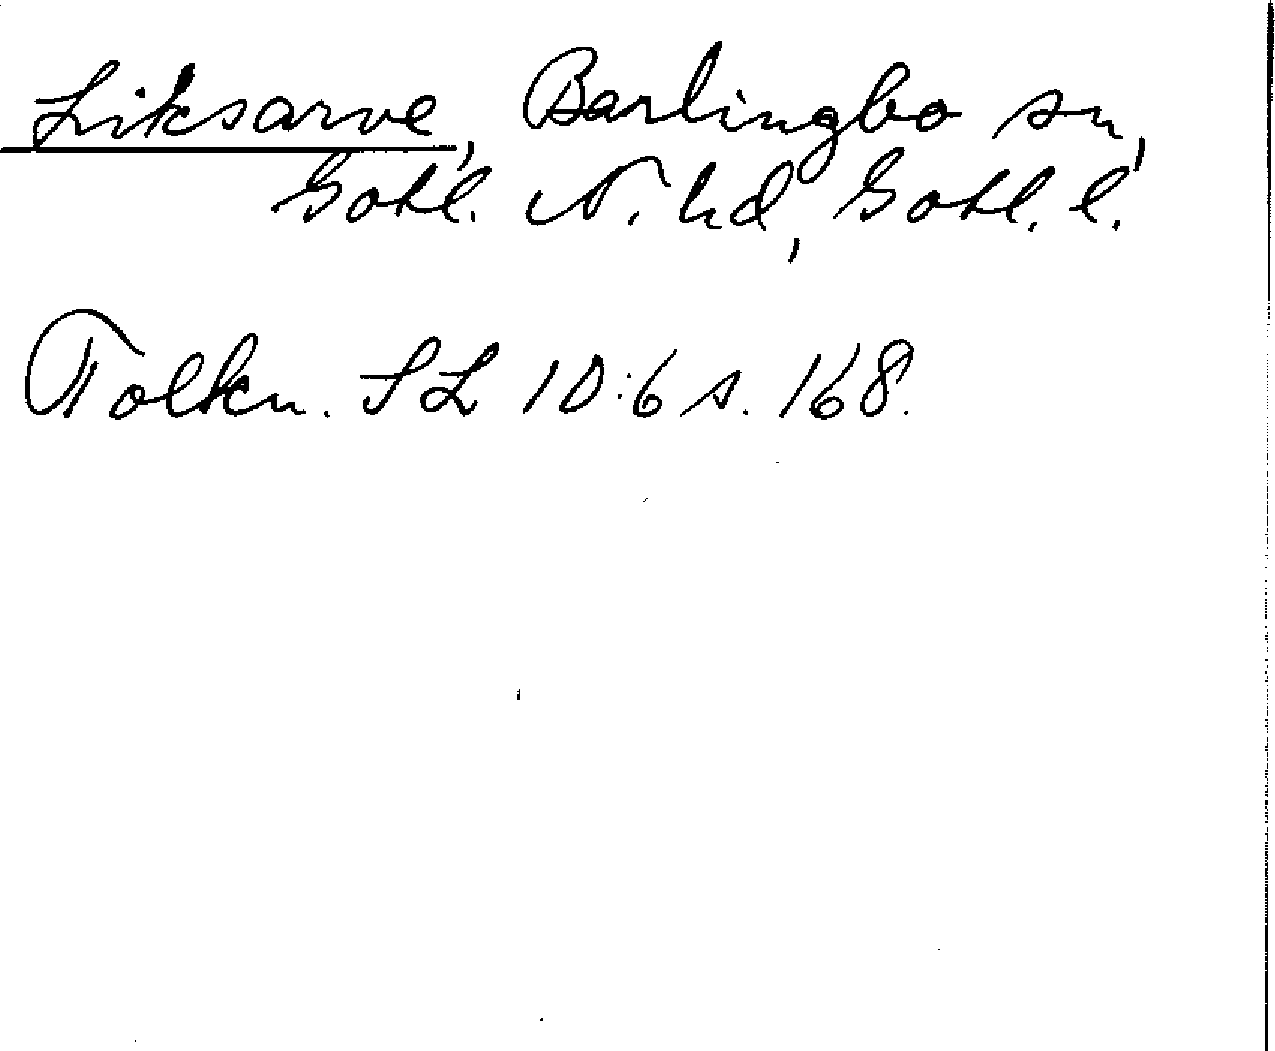 Liksarve, Barlingbo sn,
Gotl. N. hd, Gotl. l.
Tolkn. SL 10:6 s. 168.